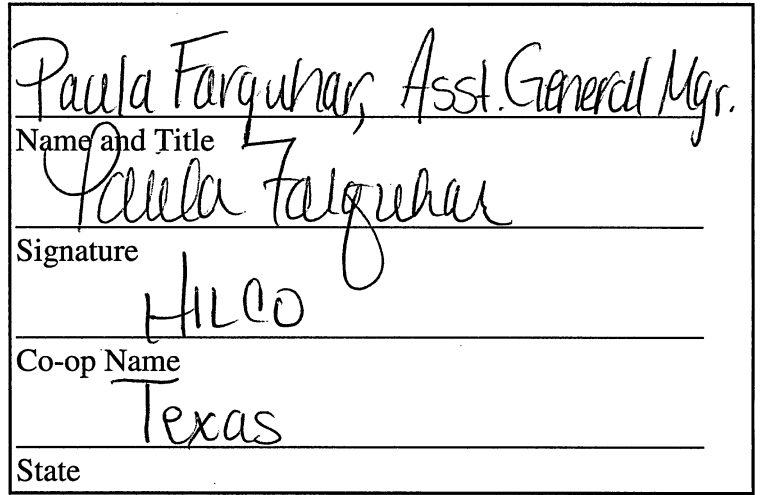 Paula Farquhar, Asst. General Mgr.
Name and Title
Paula Farquhar
Signature
HILCO
Co-op Name
Texas
State